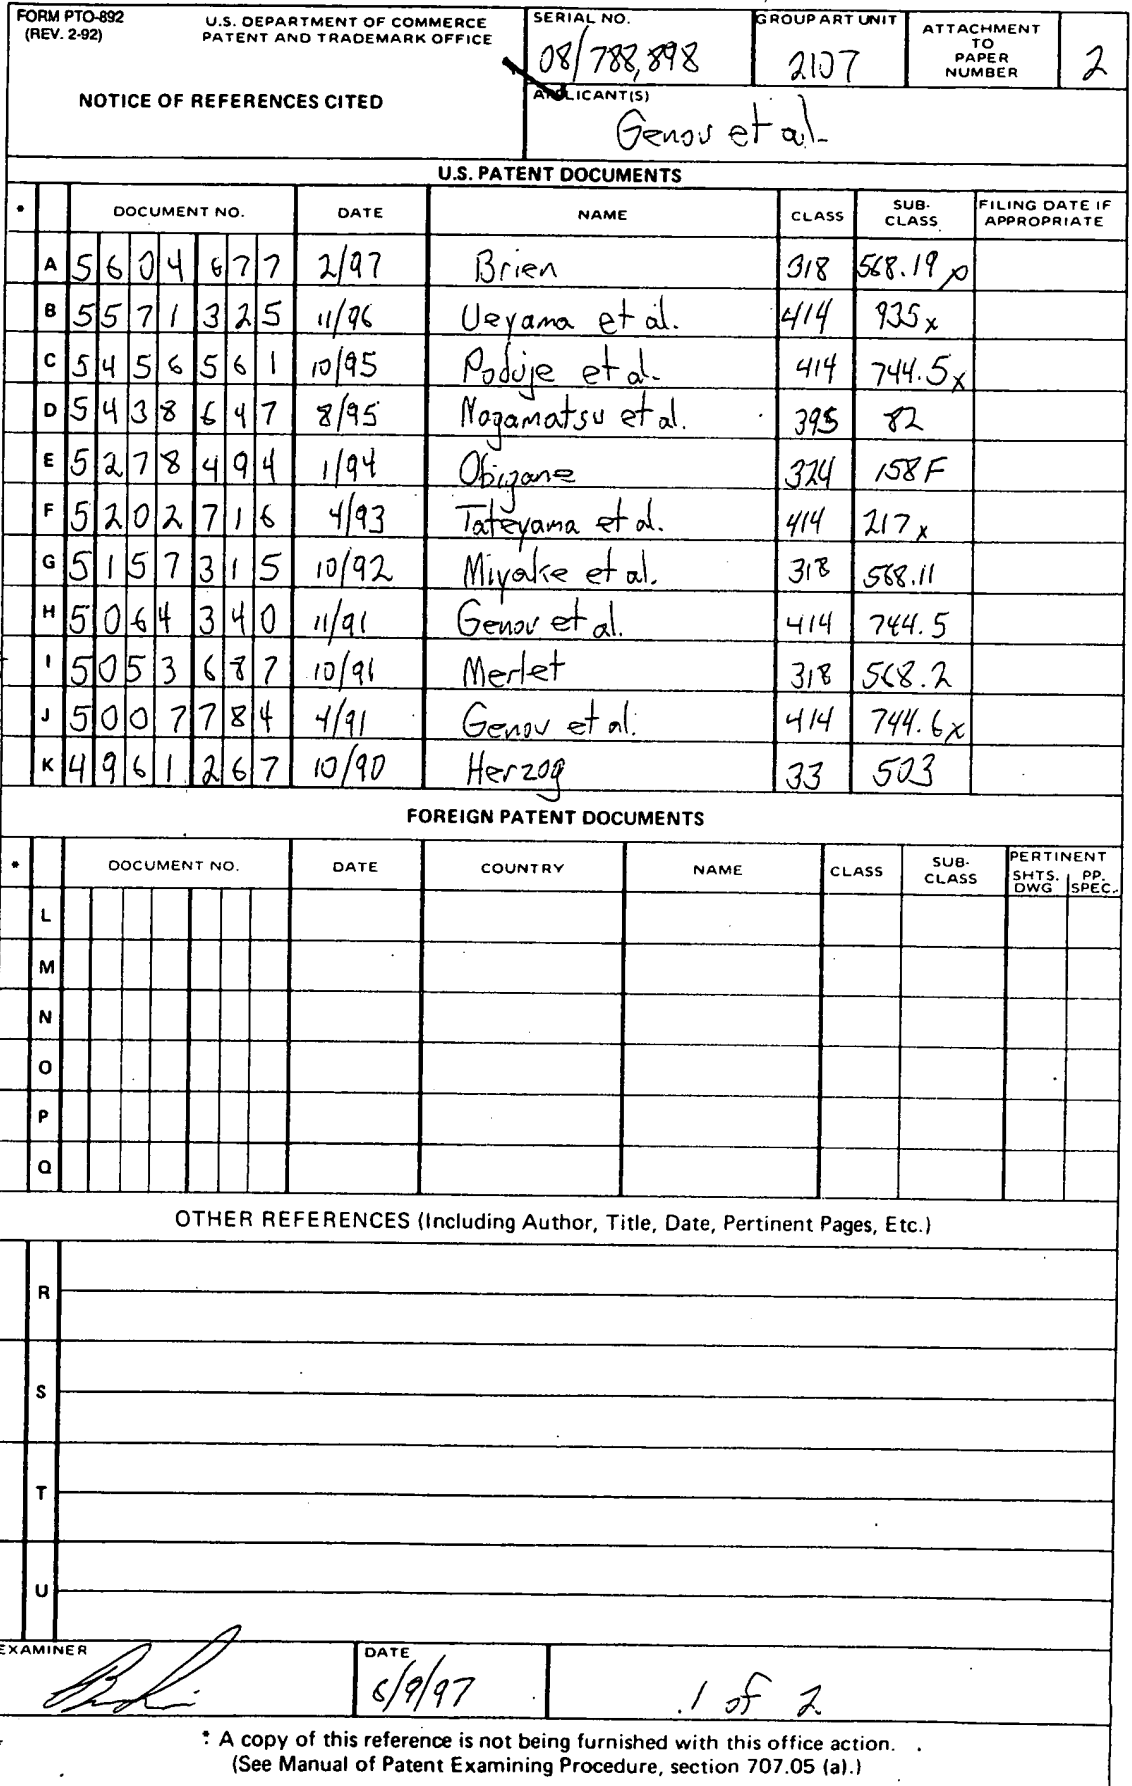 FORM PTO-892 U.S. DEPARTMENT OF COMMERCE SERIAL NO. GROUP ART UNIT ATTACHMENT
(REV. 2-92) PATENT AND TRADEMARK OFFICE 08/788,898 2107 TO PAPER NUMBER 2
NOTICE OF REFERENCES CITED APPLICANT(S)
Genov et al.
U.S. PATENT DOCUMENTS
* DOCUMENT NO. DATE NAME CLASS SUB-CLASS FILING DATE IF APPROPRIATE
A 5604677 2/97 Brien 318 568.19 x
B 5571325 11/96 Ueyama et al. 414 935 x
C 5456561 10/95 Poduje et al. 414 744.5 x
D 5438647 8/95 Nagamatsu et al. 395 82
E 5278494 1/94 Obigane 324 158F
F 5202716 4/93 Tateyama et al. 414 217 x
G 5157315 10/92 Miyake et al. 318 568.11
H 5064340 11/91 Genov et al. 414 744.5
I 5053687 10/91 Merlet 318 568.2
J 5007784 4/91 Genov et al. 414 744.6 x
K 4961267 10/90 Herzog 33 503
FOREIGN PATENT DOCUMENTS
* DOCUMENT NO. DATE COUNTRY NAME CLASS SUB-CLASS PERTINENT SHTS. DWG PP. SPEC.
L
M
N
O
P
Q
OTHER REFERENCES (Including Author, Title, Date, Pertinent Pages, Etc.)
R
S
T
U
EXAMINER DATE
/9/97 1 of 2
* A copy of this reference is not being furnished with this office action.
(See Manual of Patent Examining Procedure, section 707.05 (a).)